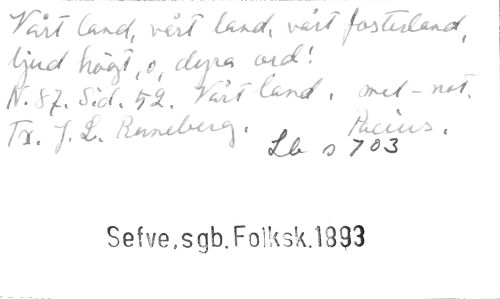 Vårt land, vårt land, vårt fosterland,
ljud högt, o, dyra ord!
N. 87. Sid. 52. Vårt land. mel-not.
Tx. J. L. Runeberg. Pacius.
Lb s 703
Sefve, sgb, Folksk. 1893